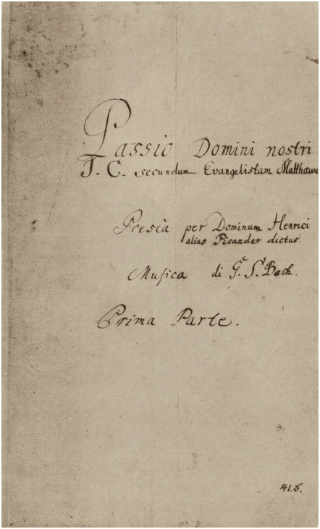 Passio Domini nostri
J. C. secundum Evangelistam Matthaeum
Poesia per Dominum Henrici
alias Picander dictus
Musica di G. S. Bach.
Prima Parte.
41.6.